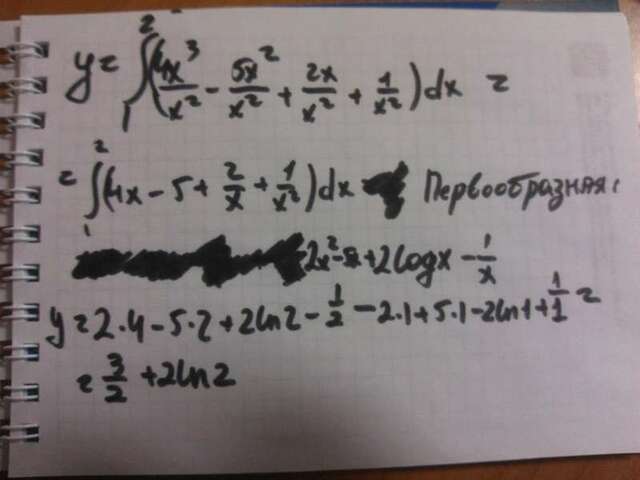 y = ∫₁² (4x³/x² - 5x²/x² + 2x/x² + 1/x²) dx =
= ∫₁² (4x - 5 + 2/x + 1/x²) dx Первообразная:
2x² - + 2logx - 1/x
y = 2·4 - 5·2 + 2ln2 - 1/2 - 2·1 + 5·1 - 2ln1 + 1/1 =
= 3/2 + 2ln2